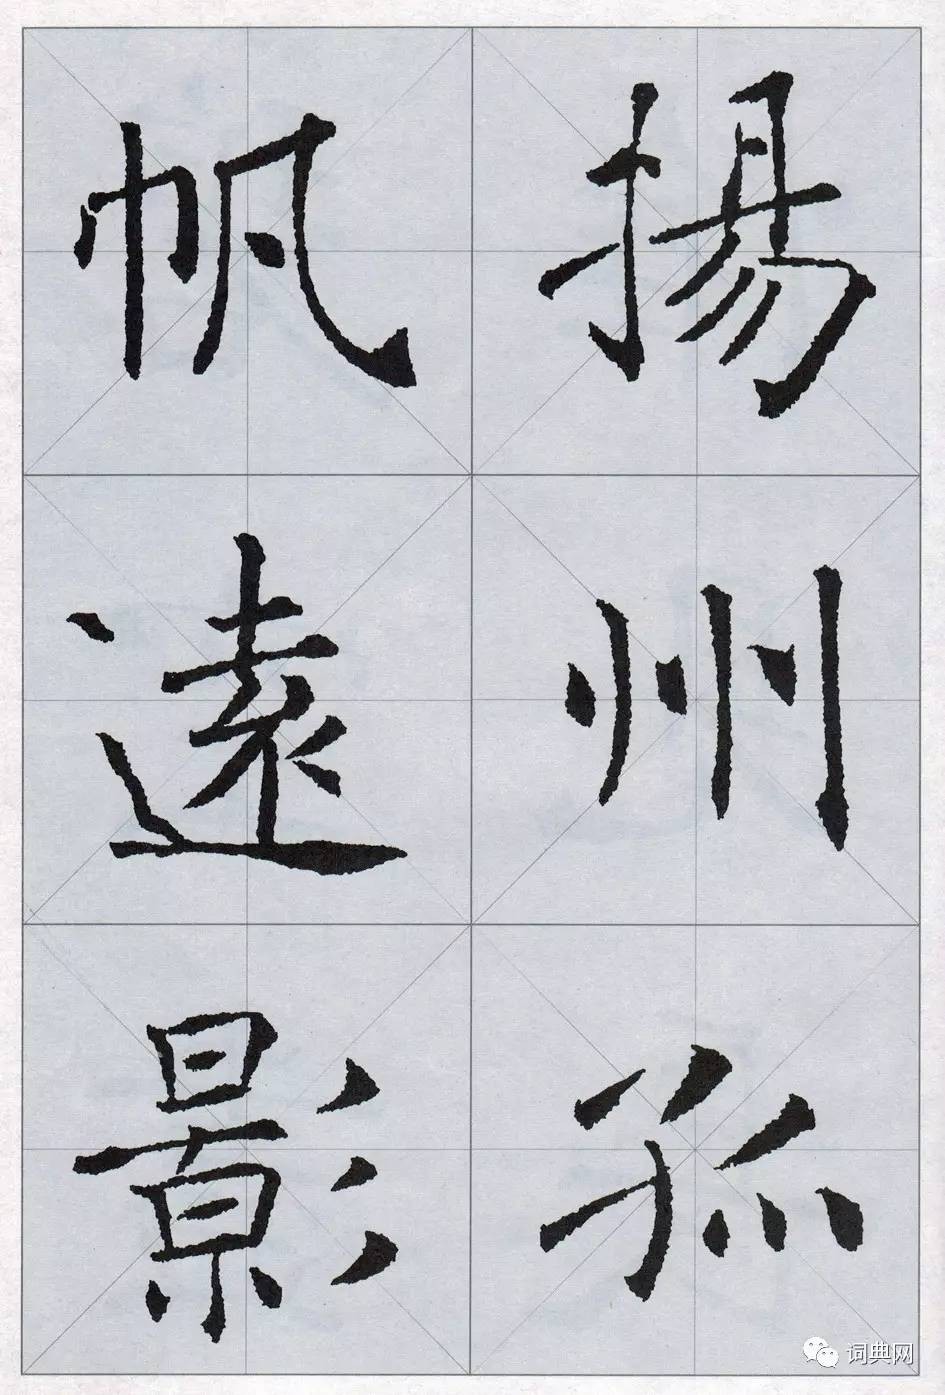 揚州孤
帆遠影
词典网